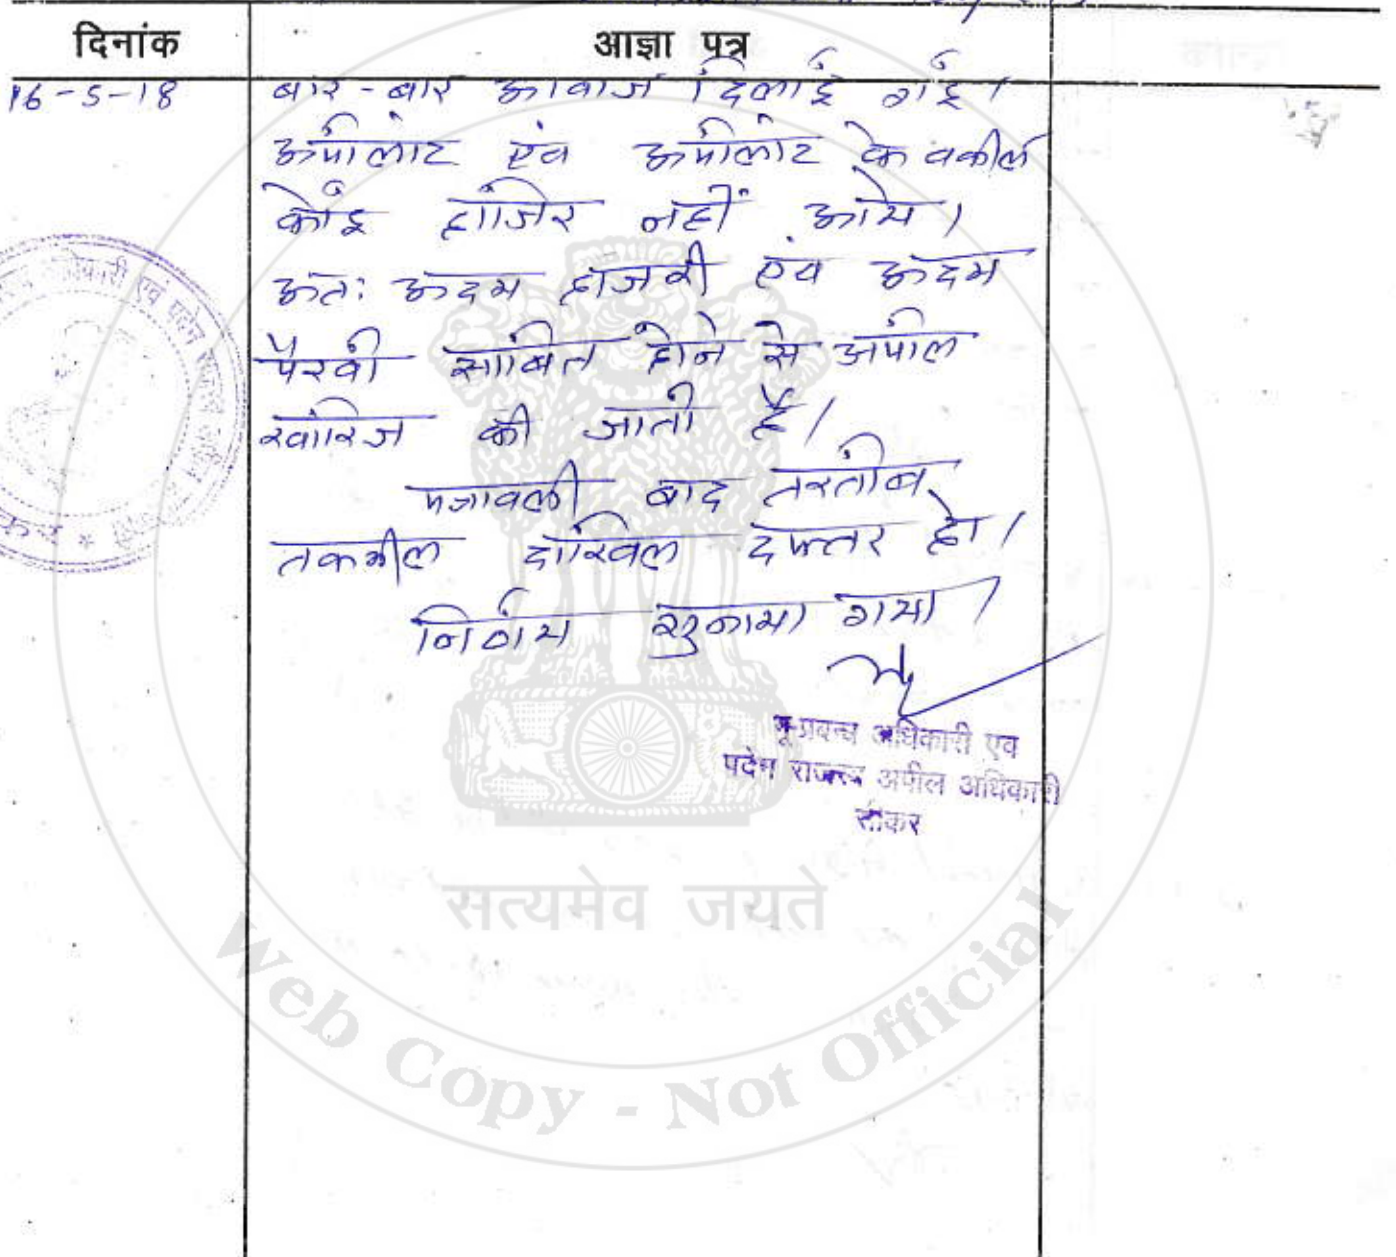 दिनांक
आज्ञा पत्र
16-5-18
बार-बार आवाज दिलाई गई।
अपीलांट एवं अपीलांट के वकील
कोई हाजिर नहीं आये।
अतः अदम हाजरी एवं अदम
पैरवी साबित होने से अपील
खारिज की जाती है।
पत्रावली बाद तरतीब
तकमील दाखिल दफ्तर हो।
निर्णय सुनाया गया।
भू-प्रबन्ध अधिकारी एव
पदेन राजस्व अपील अधिकारी
सीकर
सत्यमेव जयते
Web Copy - Not Official